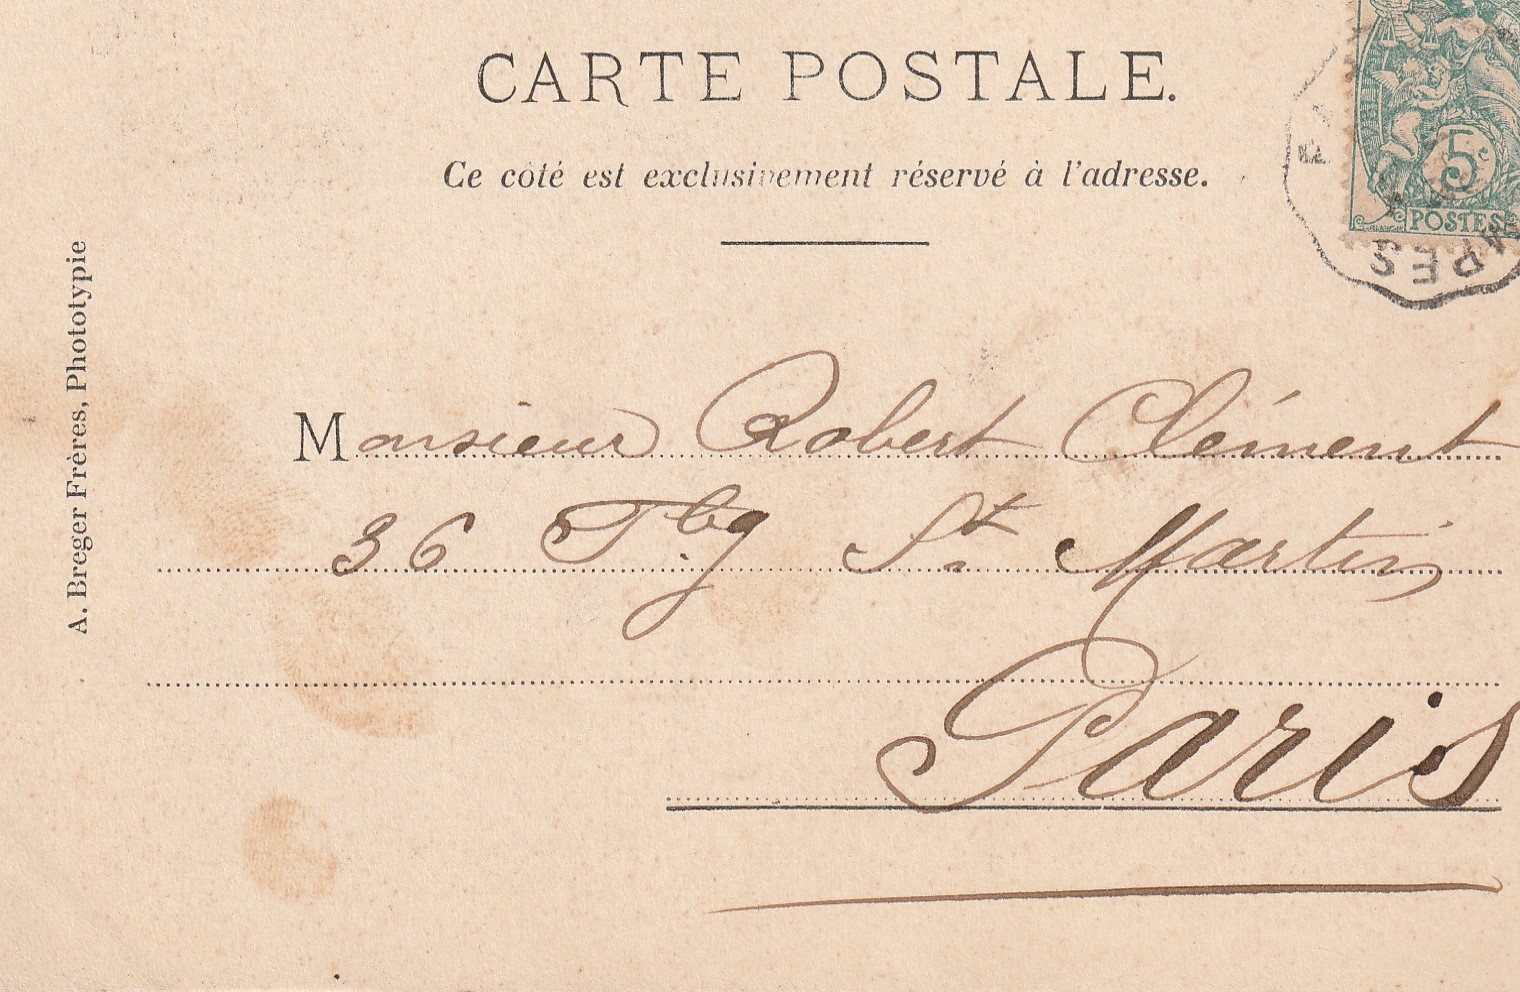 CARTE POSTALE.
Ce côté est exclusivement réservé à l'adresse.
5c
POSTES
A. Breger Frères, Phototypie
Monsieur Robert Clément
36 Fbg St Martin
Paris